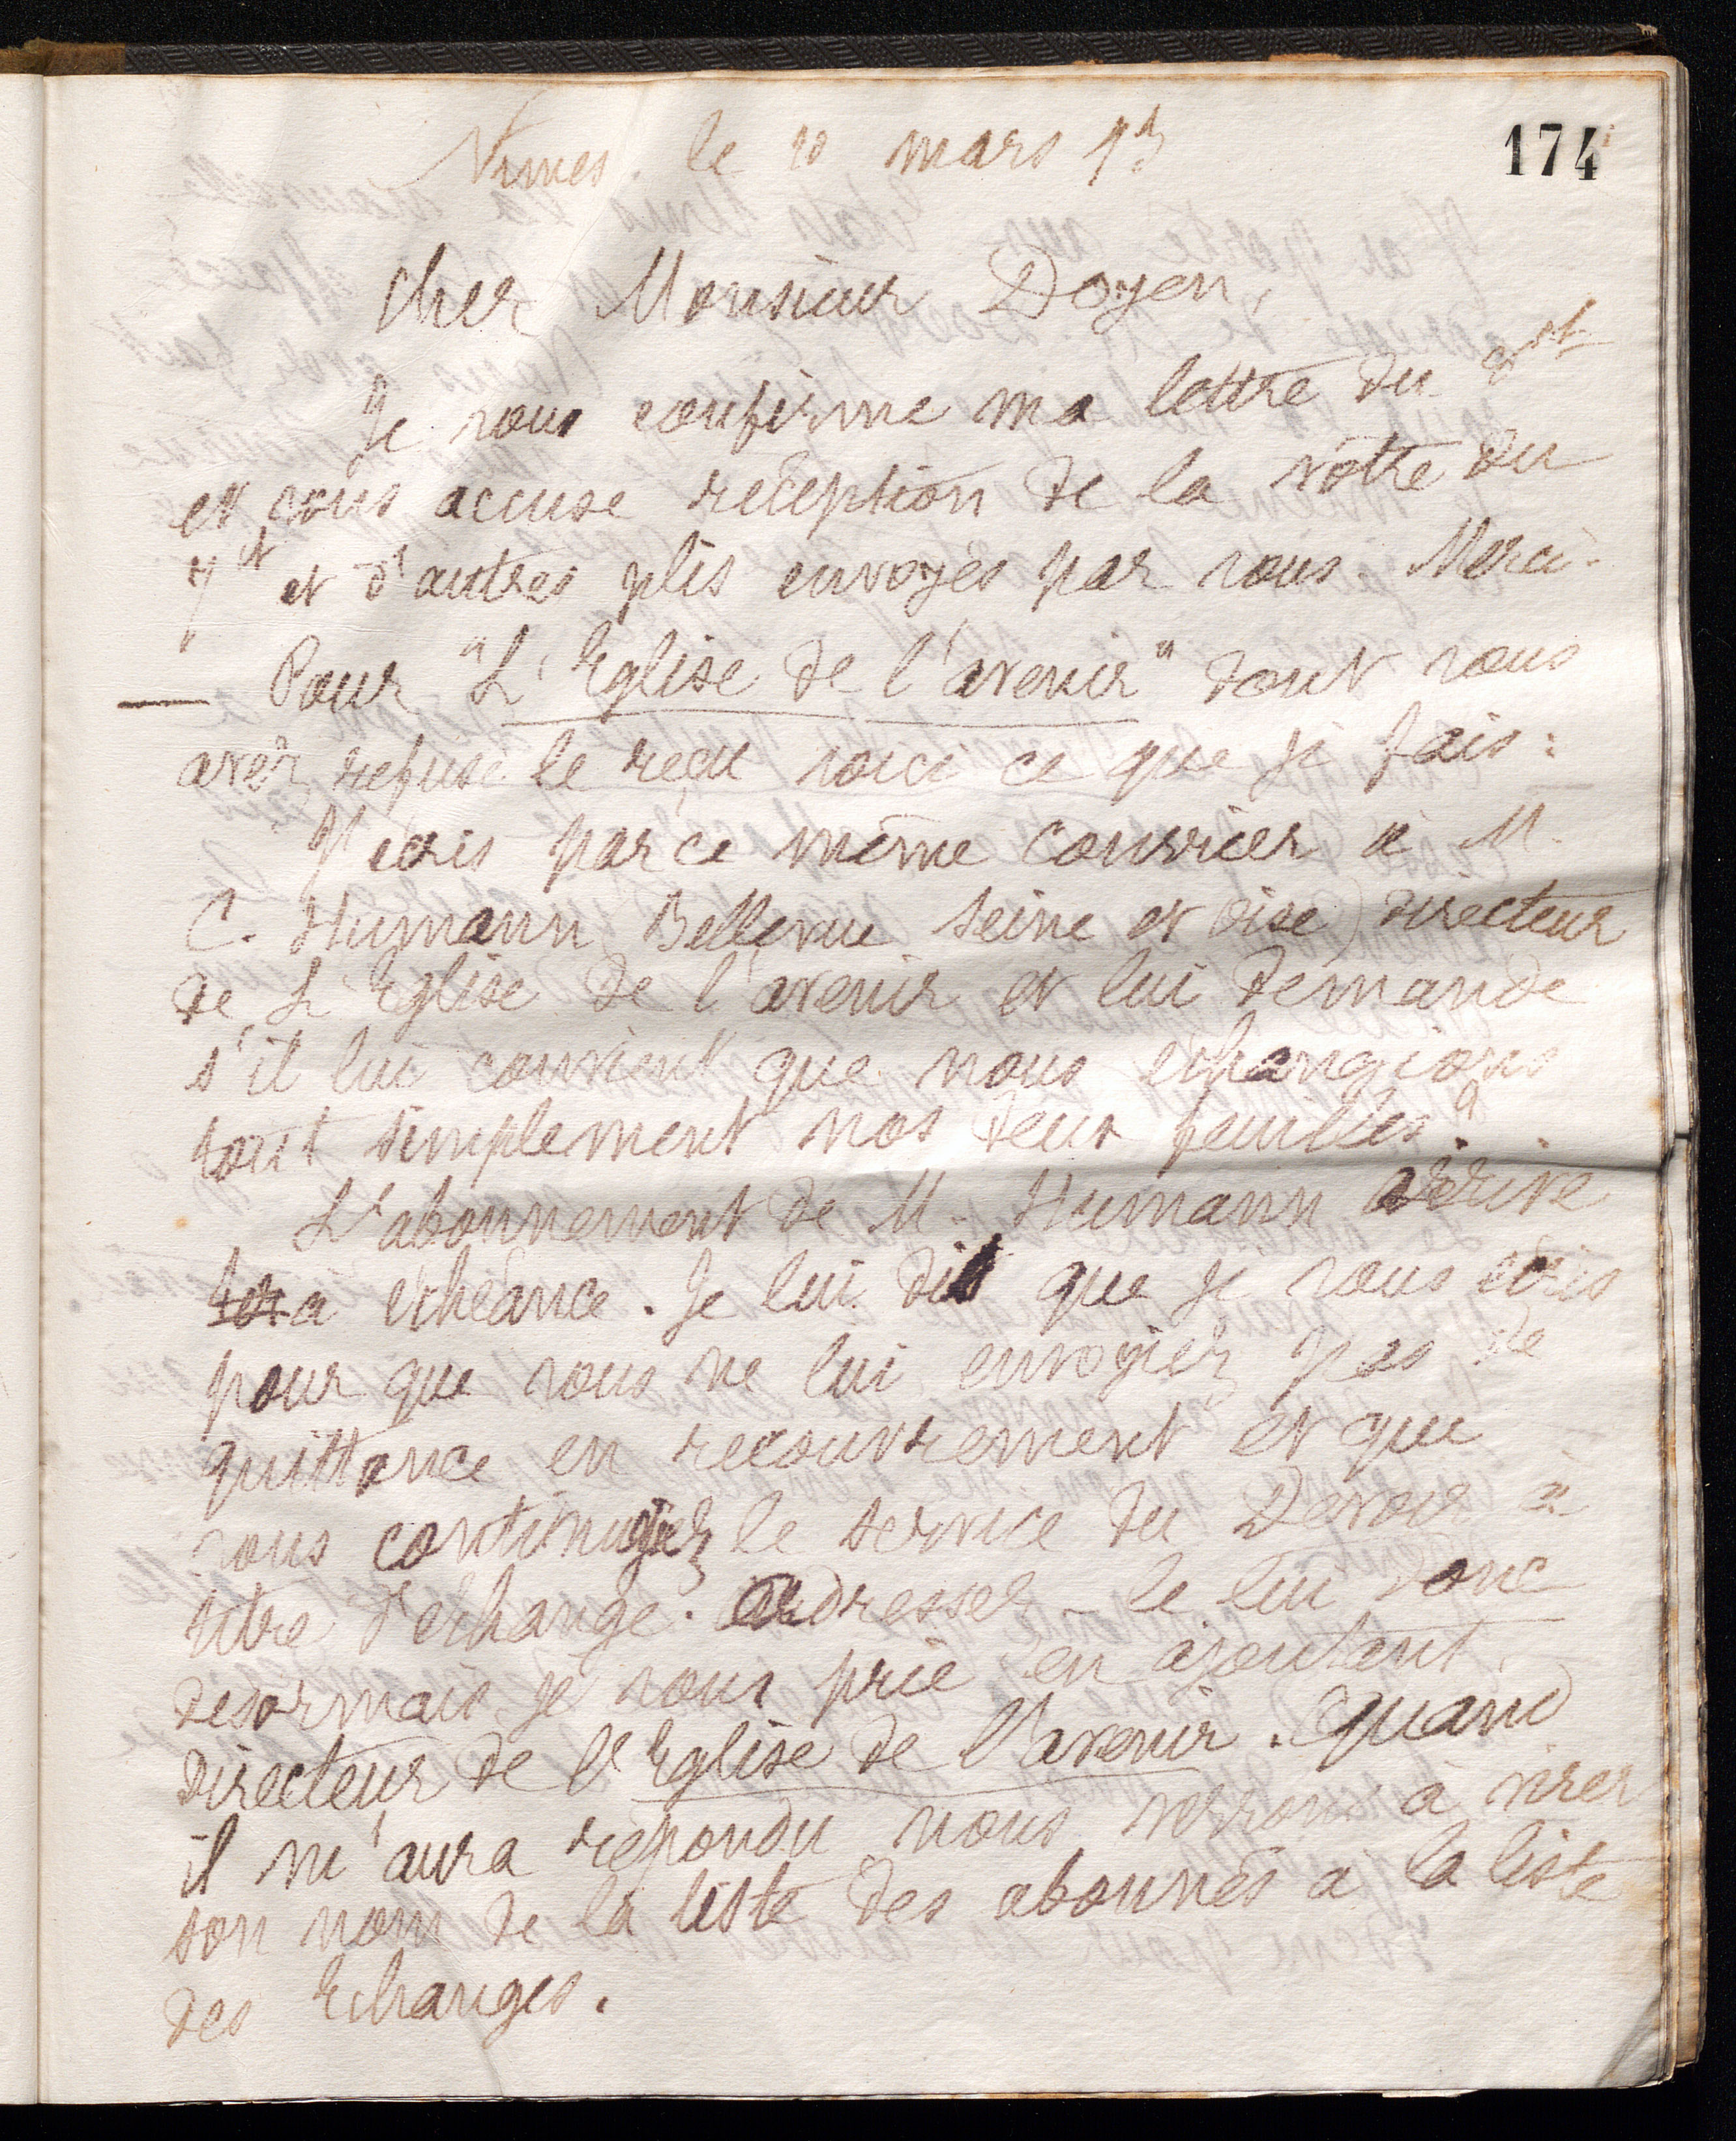 174
Nimes le 10 mars 93
Cher Monsieur Doyen,
Je vous confirme ma lettre du 8 ct
et vous accuse réception de la vôtre du
7 ct et d'autres plis envoyés par vous. Merci.
— Pour "L'Eglise de l'avenir" dont vous
avez refusé le reçu voici ce que je fais :
J'écris par ce même courrier à M.
C. Humann (Bellevue Seine et Oise) directeur
de L'Eglise de l'avenir et lui demande
s'il lui convient que nous échangions
tout simplement nos deux feuilles.
L'abonnement de M. Humann arrive
à échéance. Je lui dis que je vous écris
pour que vous ne lui envoyiez pas de
quittance en recouvrement et que
vous continuiez le service du Devoir à
titre d'échange. Adressez-le lui donc
désormais je vous prie en ajoutant
directeur de l'Eglise de l'avenir. Quand
il m'aura répondu nous verrons à virer
son nom de la liste des abonnés à la liste
des Echanges.